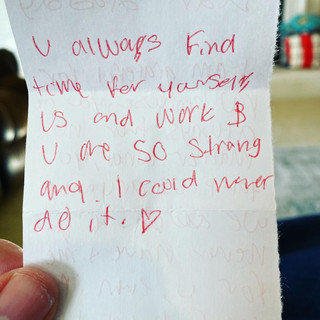 U always find
time for yourself,
us and work $
U are so strong
and I could never
do it. ♡